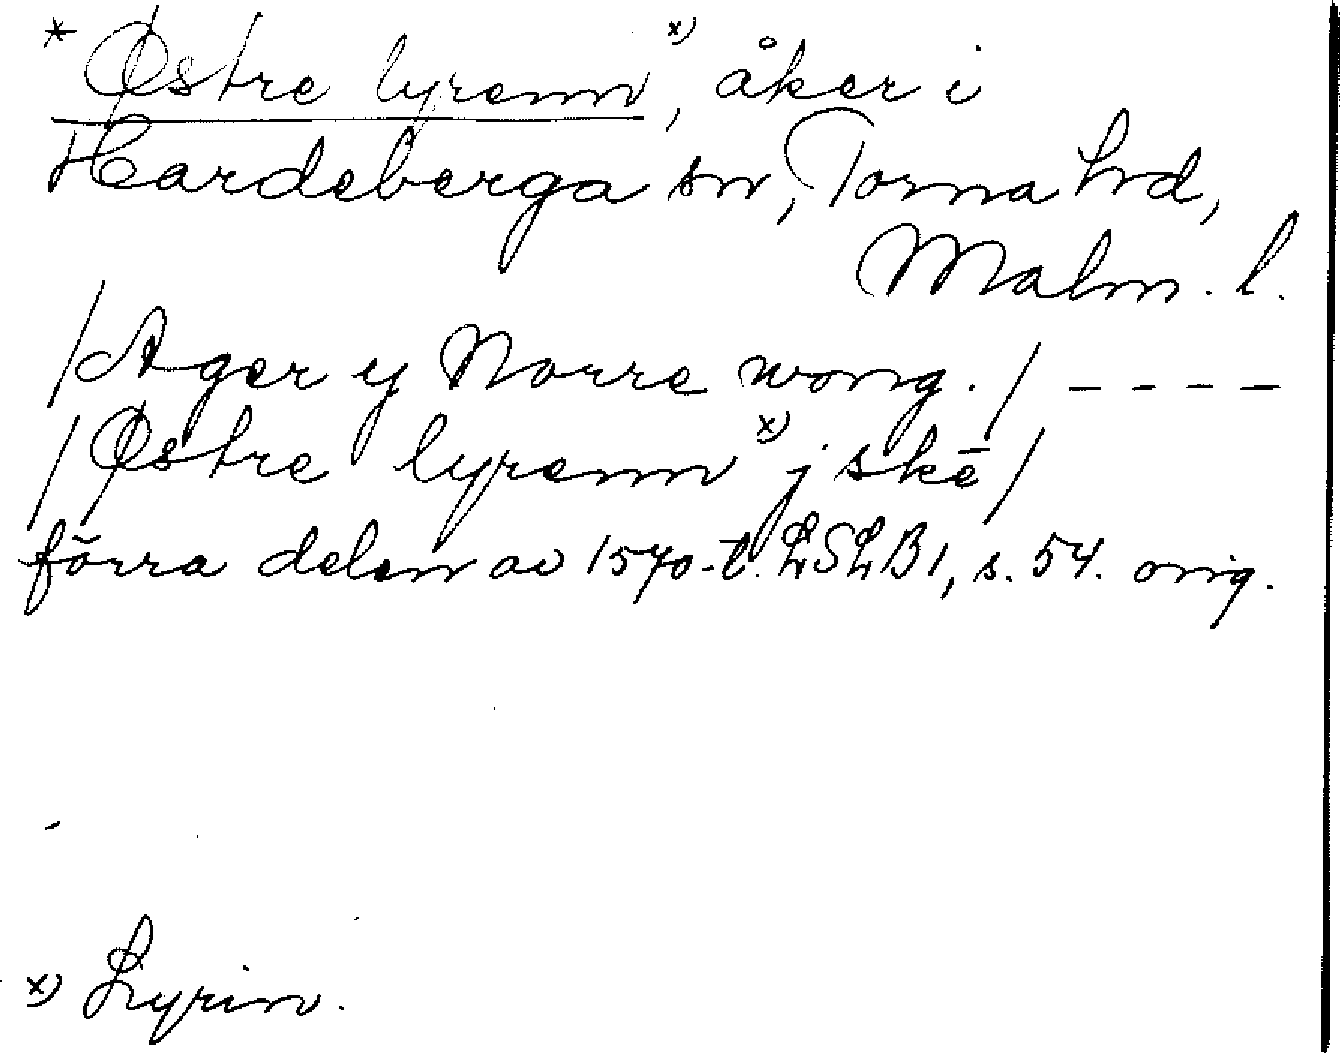 * Østre lyrenn x), åker i
Hardeberga sn, Torna hrd,
Malm. l.
/Ager y Norre wong./ ----
/Østre lyrenn x) j skē/
förra delen av 1570-t. LSLB1, s. 54. orig.
x) Lyrin.